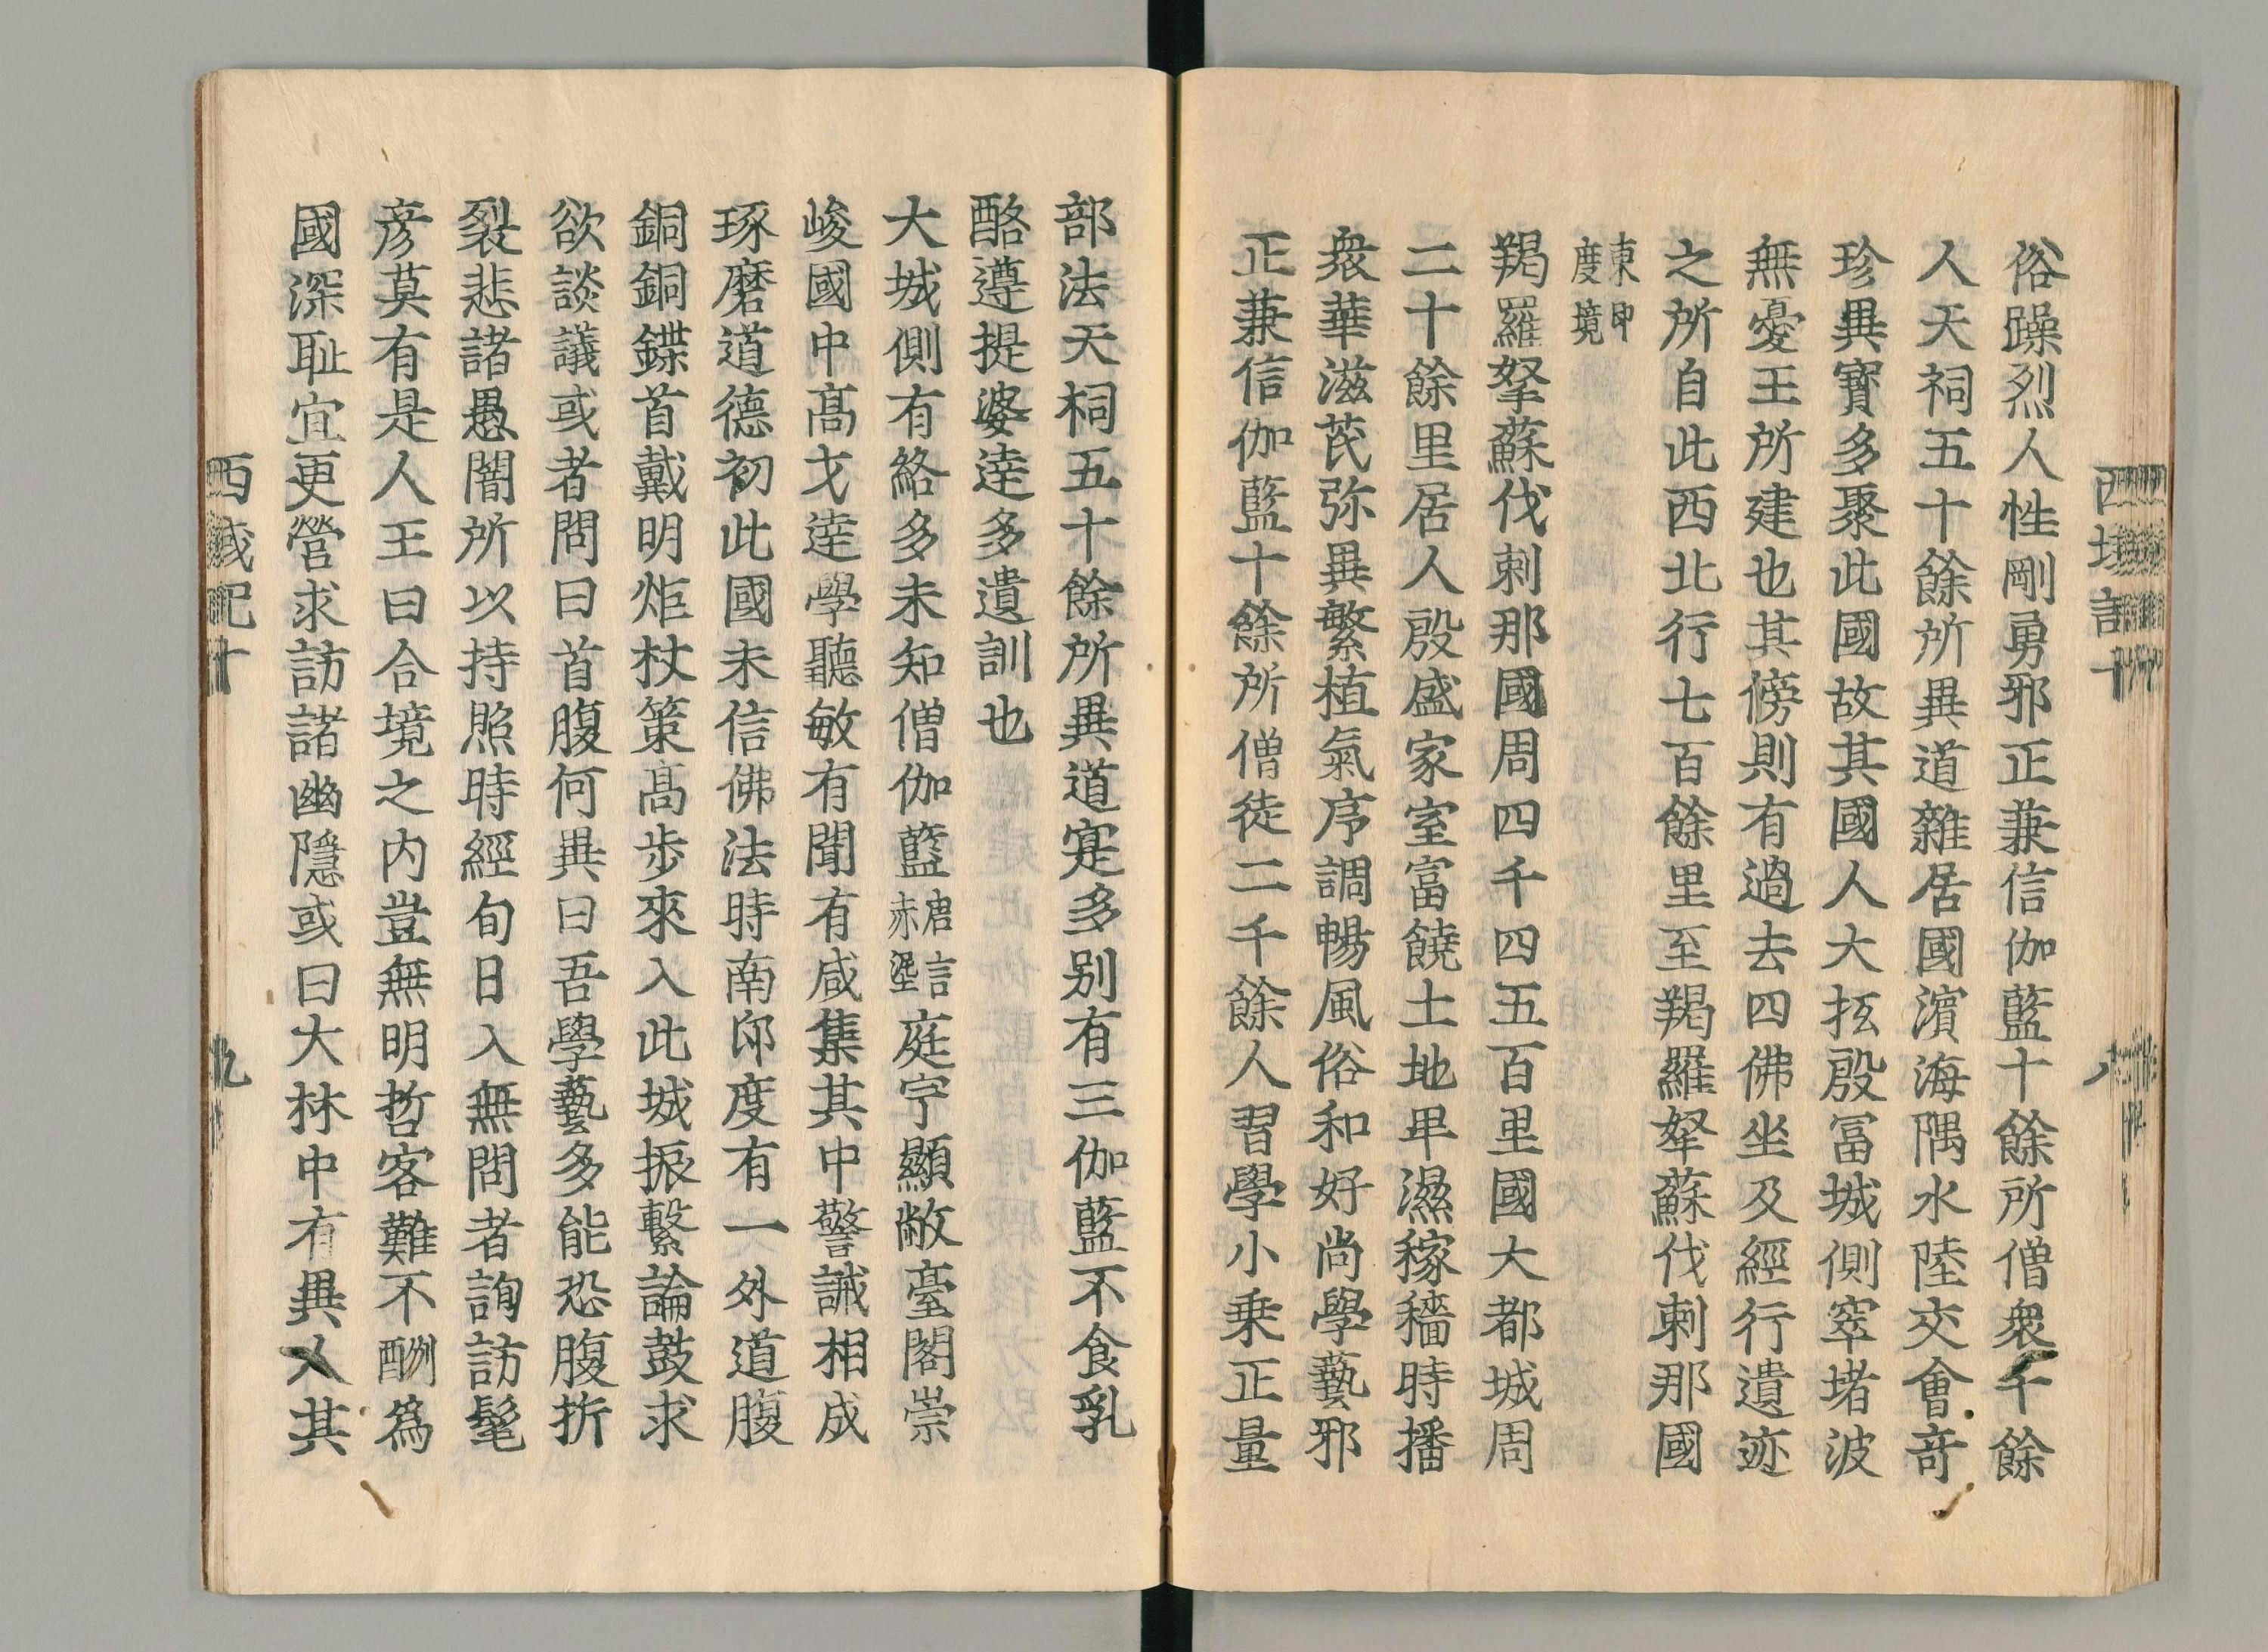 俗躁烈人性剛勇邪正兼信伽藍十餘所僧衆千餘
人天祠五十餘所異道雜居國濵海隅水陸交會竒
珍異寶多聚此國故其國人大抵殷冨城側窣堵波
無憂王所建也其傍則有過去四佛坐及經行遺迹
之所自此西北行七百餘里至羯羅拏蘇伐剌那國
東印
度境
羯羅拏蘇伐剌那國周四千四五百里國大都城周
二十餘里居人殷盛家室富饒土地卑濕稼穡時播
衆華滋茂弥異繁植氣序調暢風俗和好尚學藝邪
正兼信伽藍十餘所僧徒二千餘人習學小乗正量
西域記十 八
部法天祠五十餘所異道寔多别有三伽藍不食乳
酪遵提婆逹多遺訓也
大城側有絡多未知僧伽藍唐言赤埿庭宇顯敞臺閣崇
峻國中髙才逹學聽敏有聞有咸集其中警誡相成
琢磨道德初此國未信佛法時南印度有一外道腹
錮銅鍱首戴明炬杖策髙步來入此城振擊論鼓求
欲談議或者問曰首腹何異曰吾學藝多能恐腹拆
裂悲諸愚闇所以持照時經旬日入無問者詢訪髦
彦莫有是人王曰合境之内豈無明哲客難不酬爲
國深耻宜更營求訪諸幽隱或曰大林中有異人其
西域記十 九